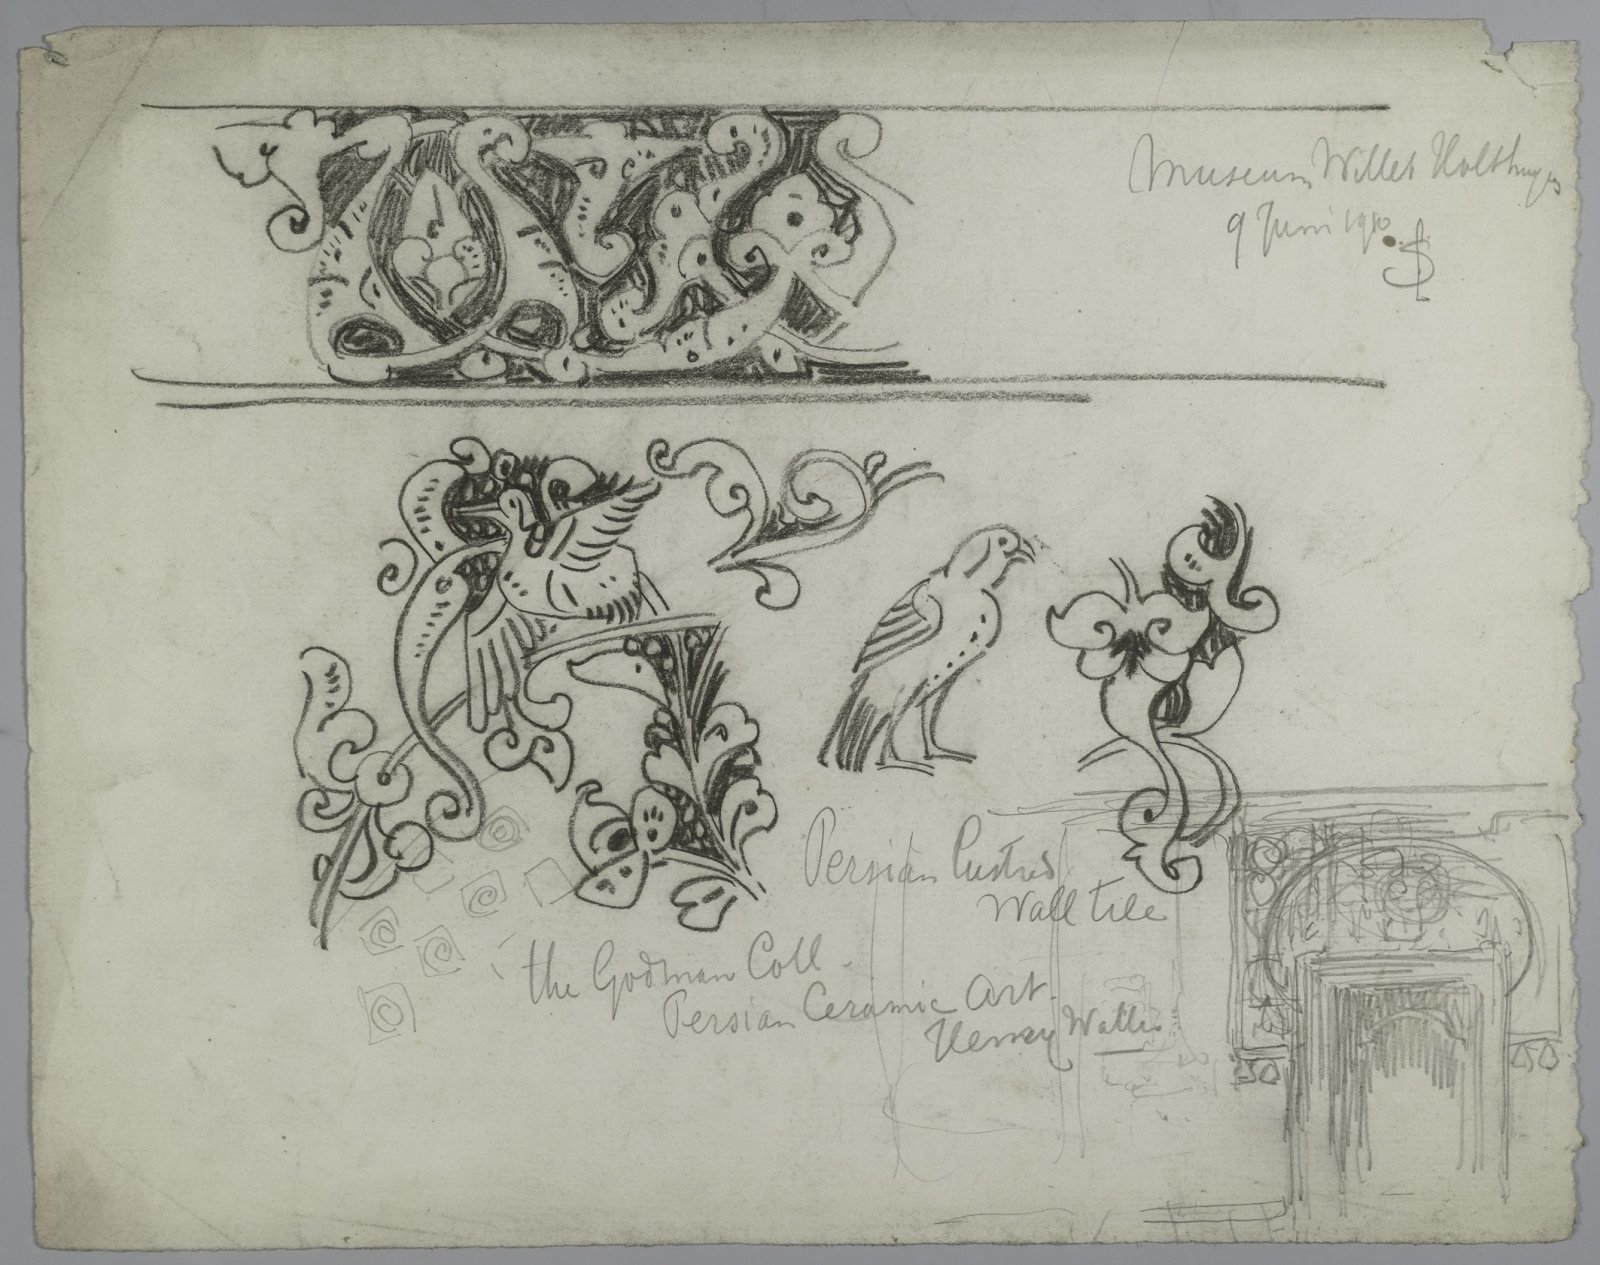 Museum Willet Holthuyse
9 Juni 1910
Persian lustred
Wall tile
the Godman Coll.
Persian Ceramic Art.
Henry Wallis